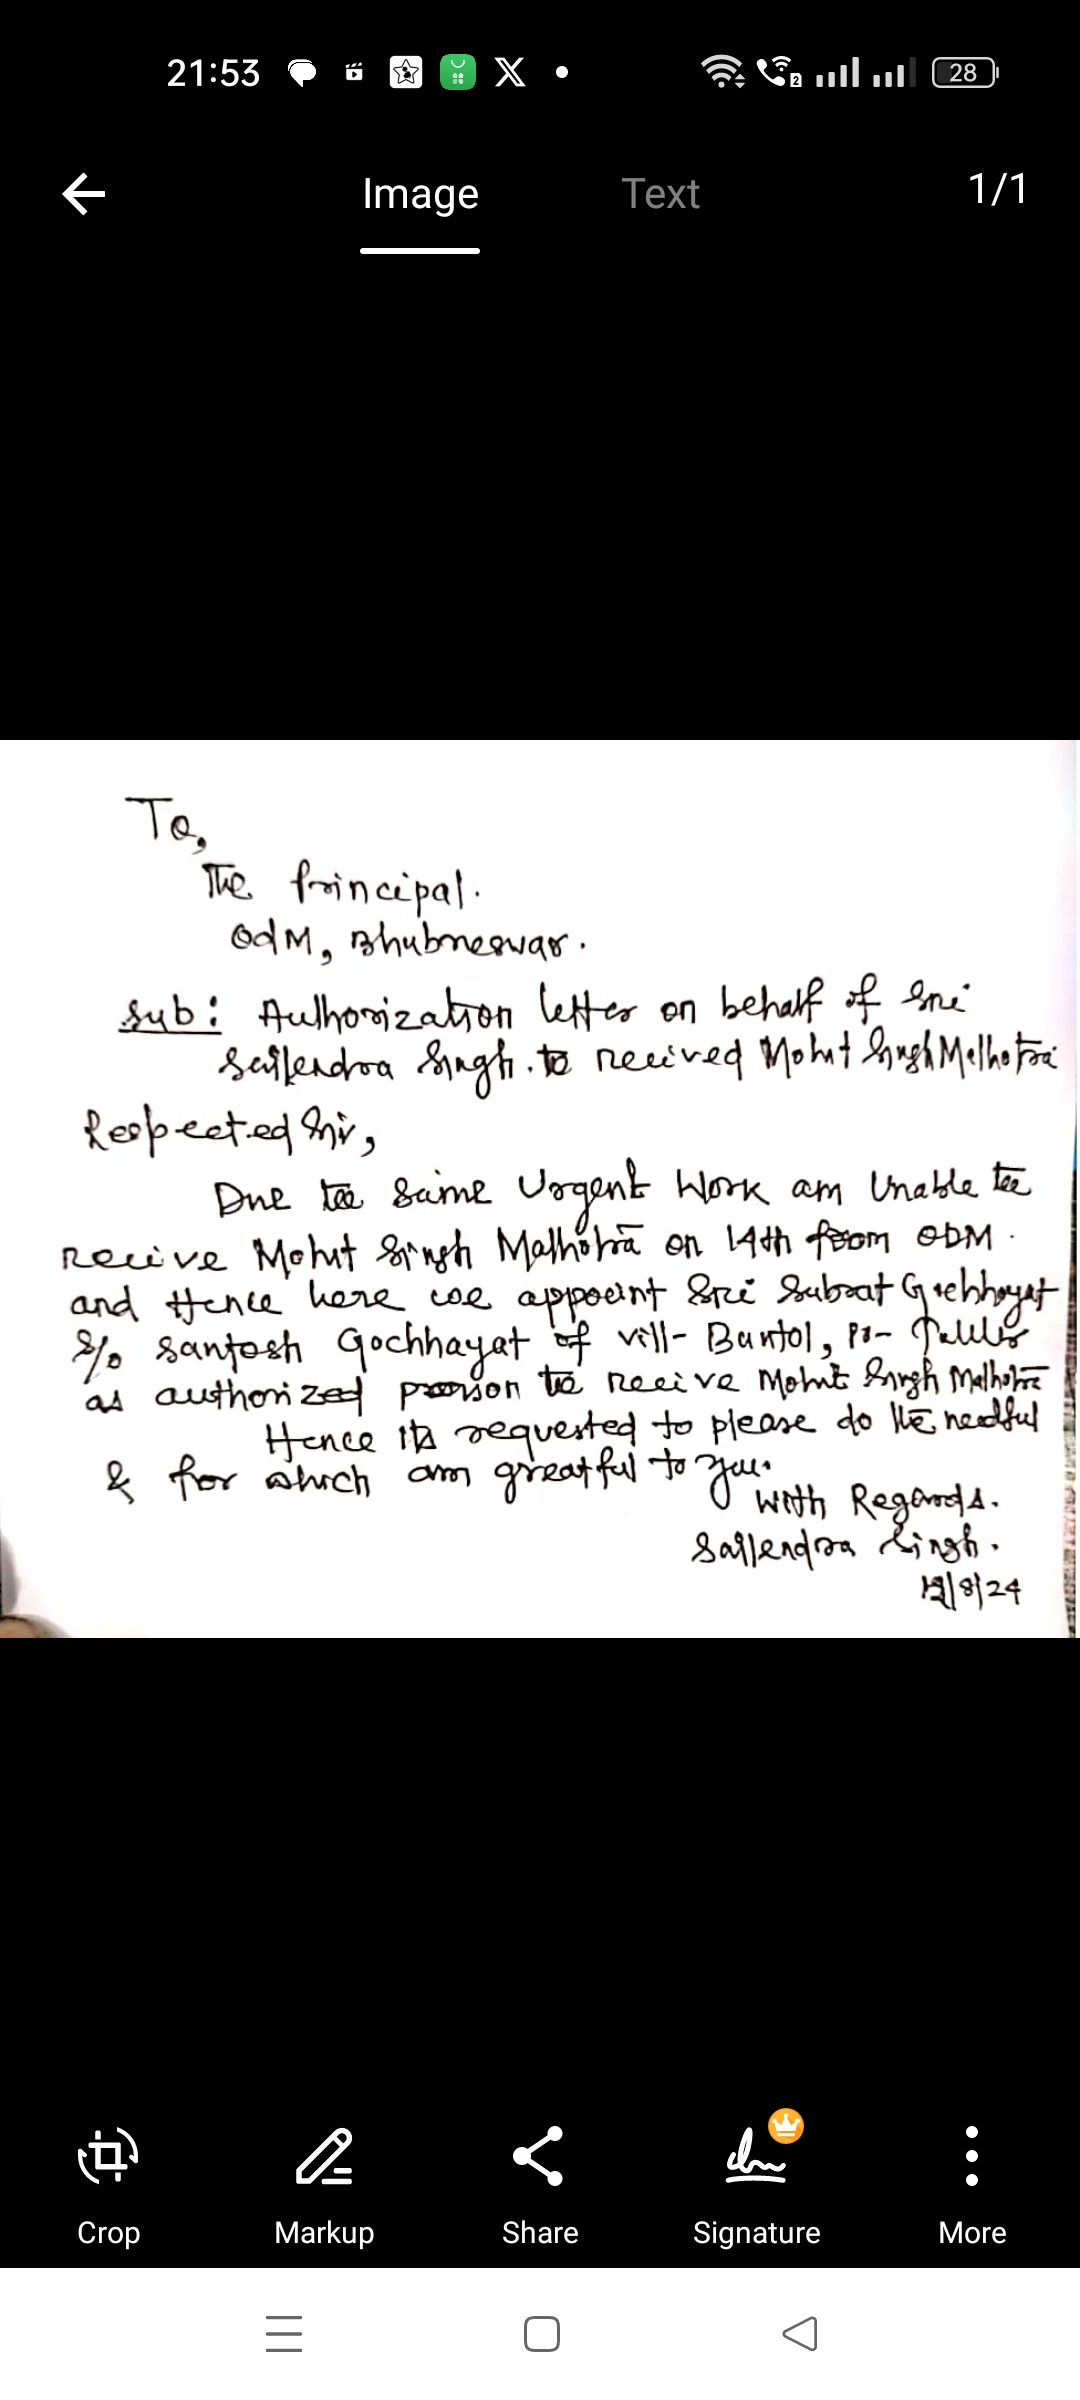 21:53
28
Image Text 1/1
To,
The Principal.
OdM, Bhubneswar.
Sub: Authorization letter on behalf of Sri
Sailendra Singh. to recived Mohit Singh Malhotra
Respected Sir,
Due to Some Urgent Work am Unable to
recive Mohit Singh Malhotra on 14th from ODM.
and Hence here we appoint Sri Subrat Gochhayat
S/o Santosh Gochhayat of vill- Bantol, Po-
as authorized person to recive Mohit Singh Malhotra
Hence its requested to please do the needful
& for which am greatful to you.
With Regards.
Sailendra Singh.
/8/24
Crop Markup Share Signature More